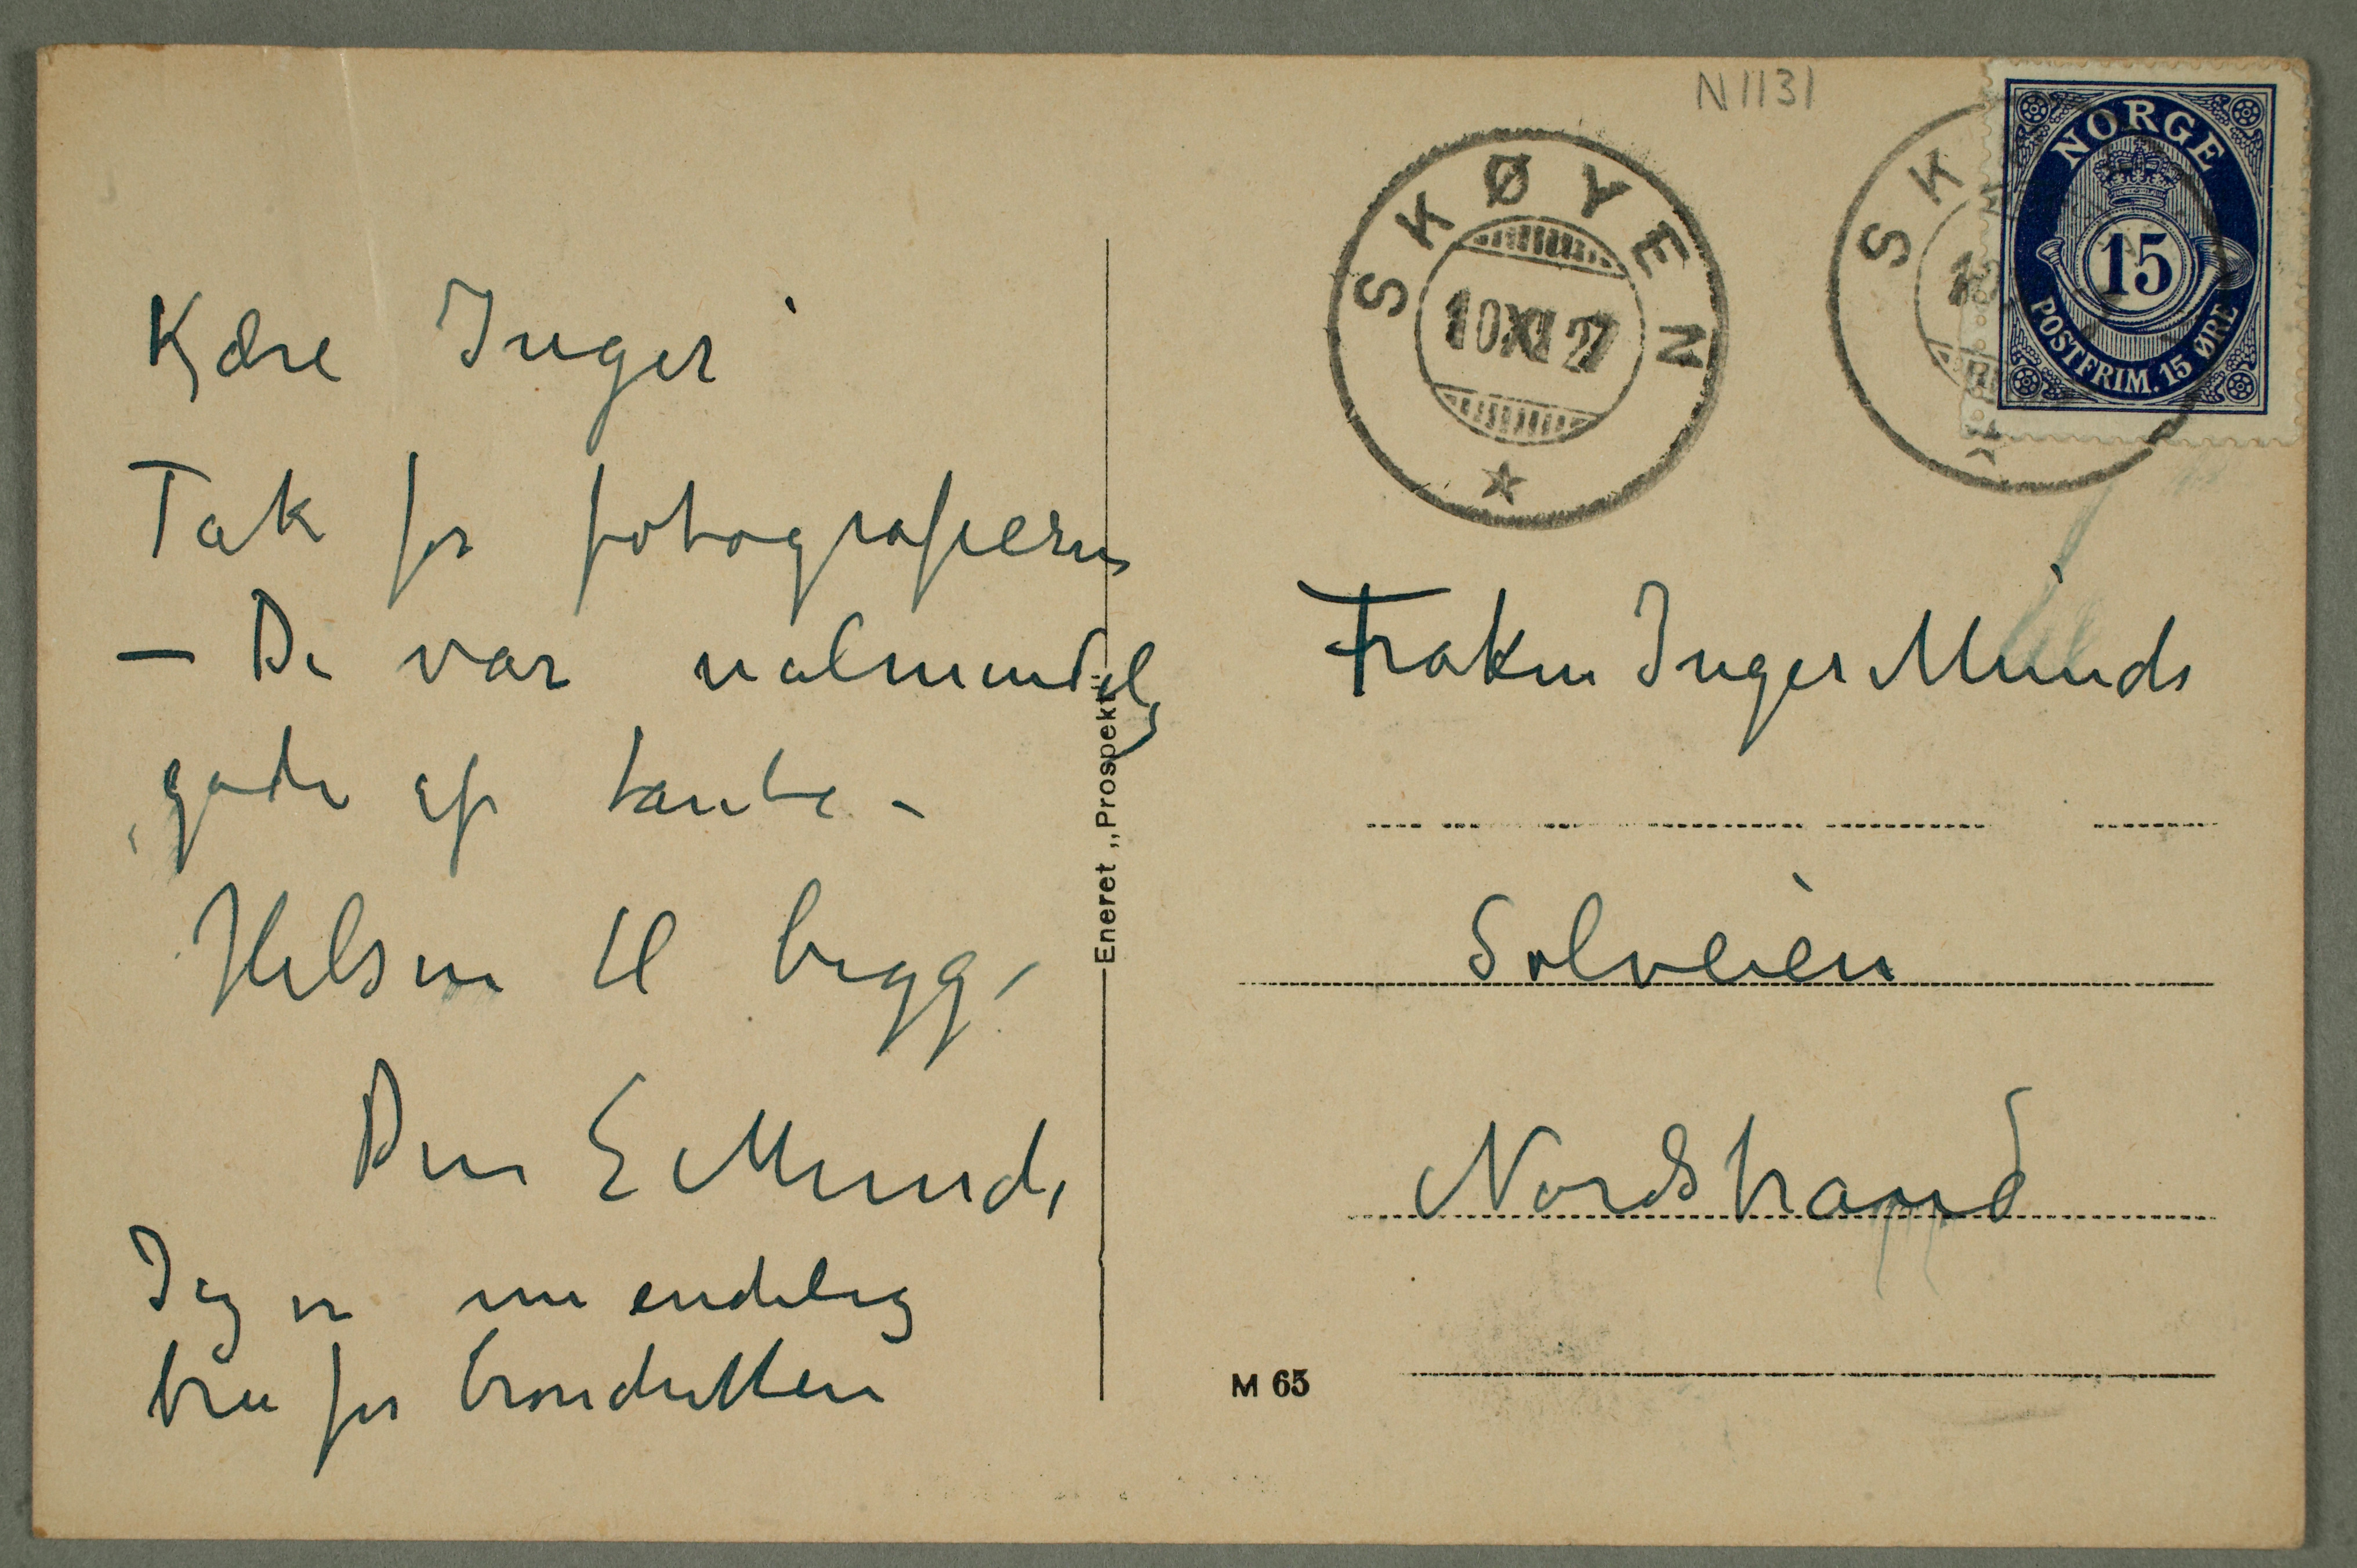 N 1131
SKØYEN
10 XI 27
SK
NORGE
15
POSTFRIM. 15 ØRE
Kjære Inger
Tak for fotografierne
– De var ualmindelig
gode af tante –
Hilsen til begge
Din E Munch
Jeg er nu endelig
bra for bronchitten
Eneret „Prospekt"
Frøken Inger Munch
Solveien
Nordstrand
M 63